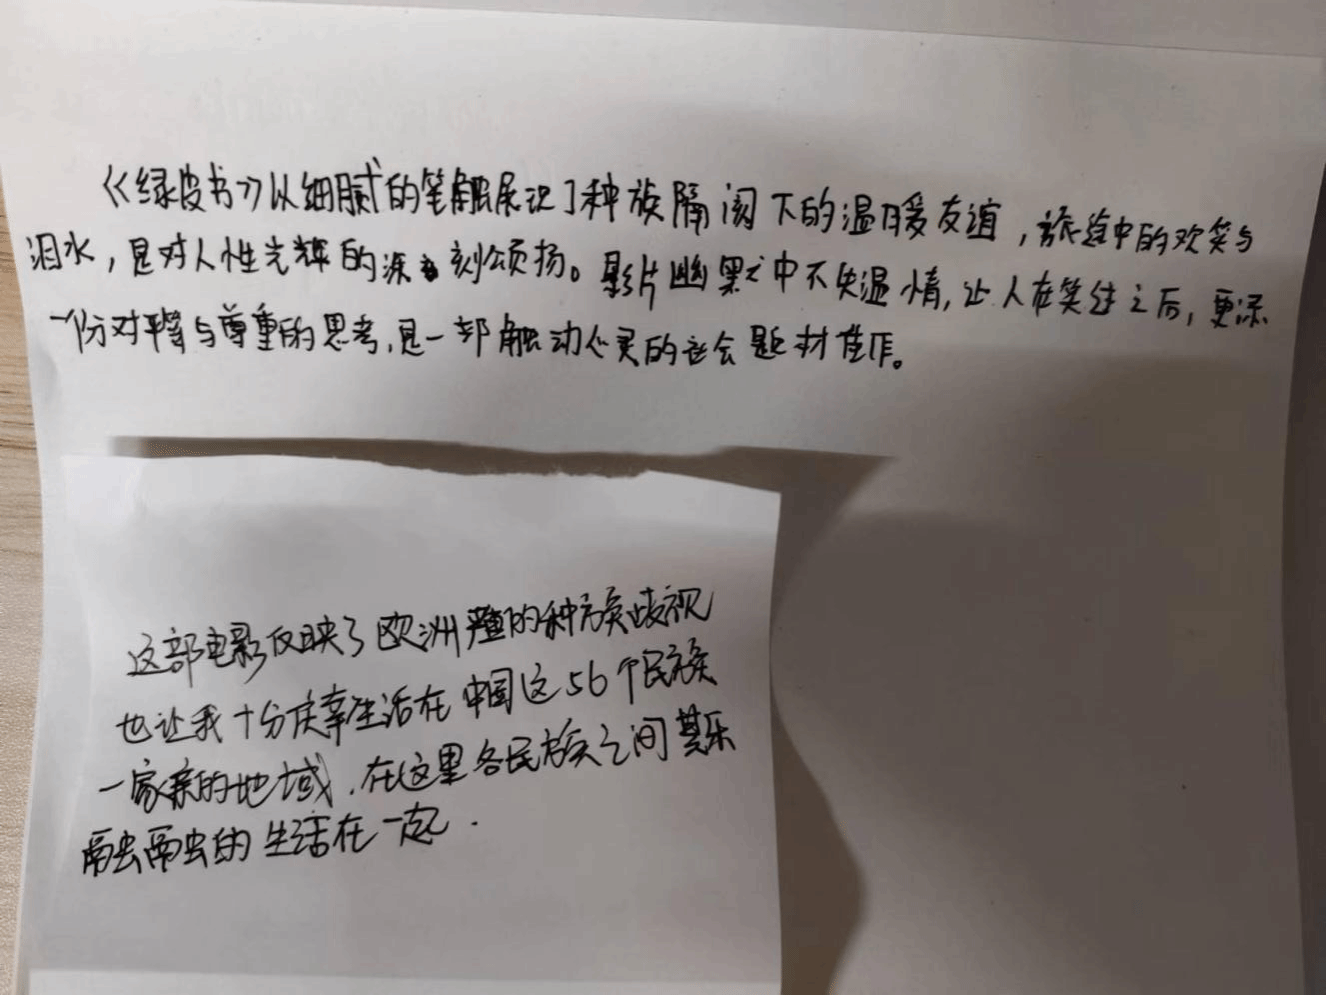 《绿皮书》以细腻的笔触展现了种族隔阂下的温暖友谊，旅途中的欢笑与
泪水，是对人性光辉的深刻颂扬。影片幽默中不失温情，让人在笑过之后，更添
一份对平等与尊重的思考，是一部触动心灵的社会题材佳作。
这部电影反映了欧洲的种族歧视
也让我十分庆幸生活在中国这56个民族
一家亲的地域．在这里各民族之间其乐
融融的生活在一起．